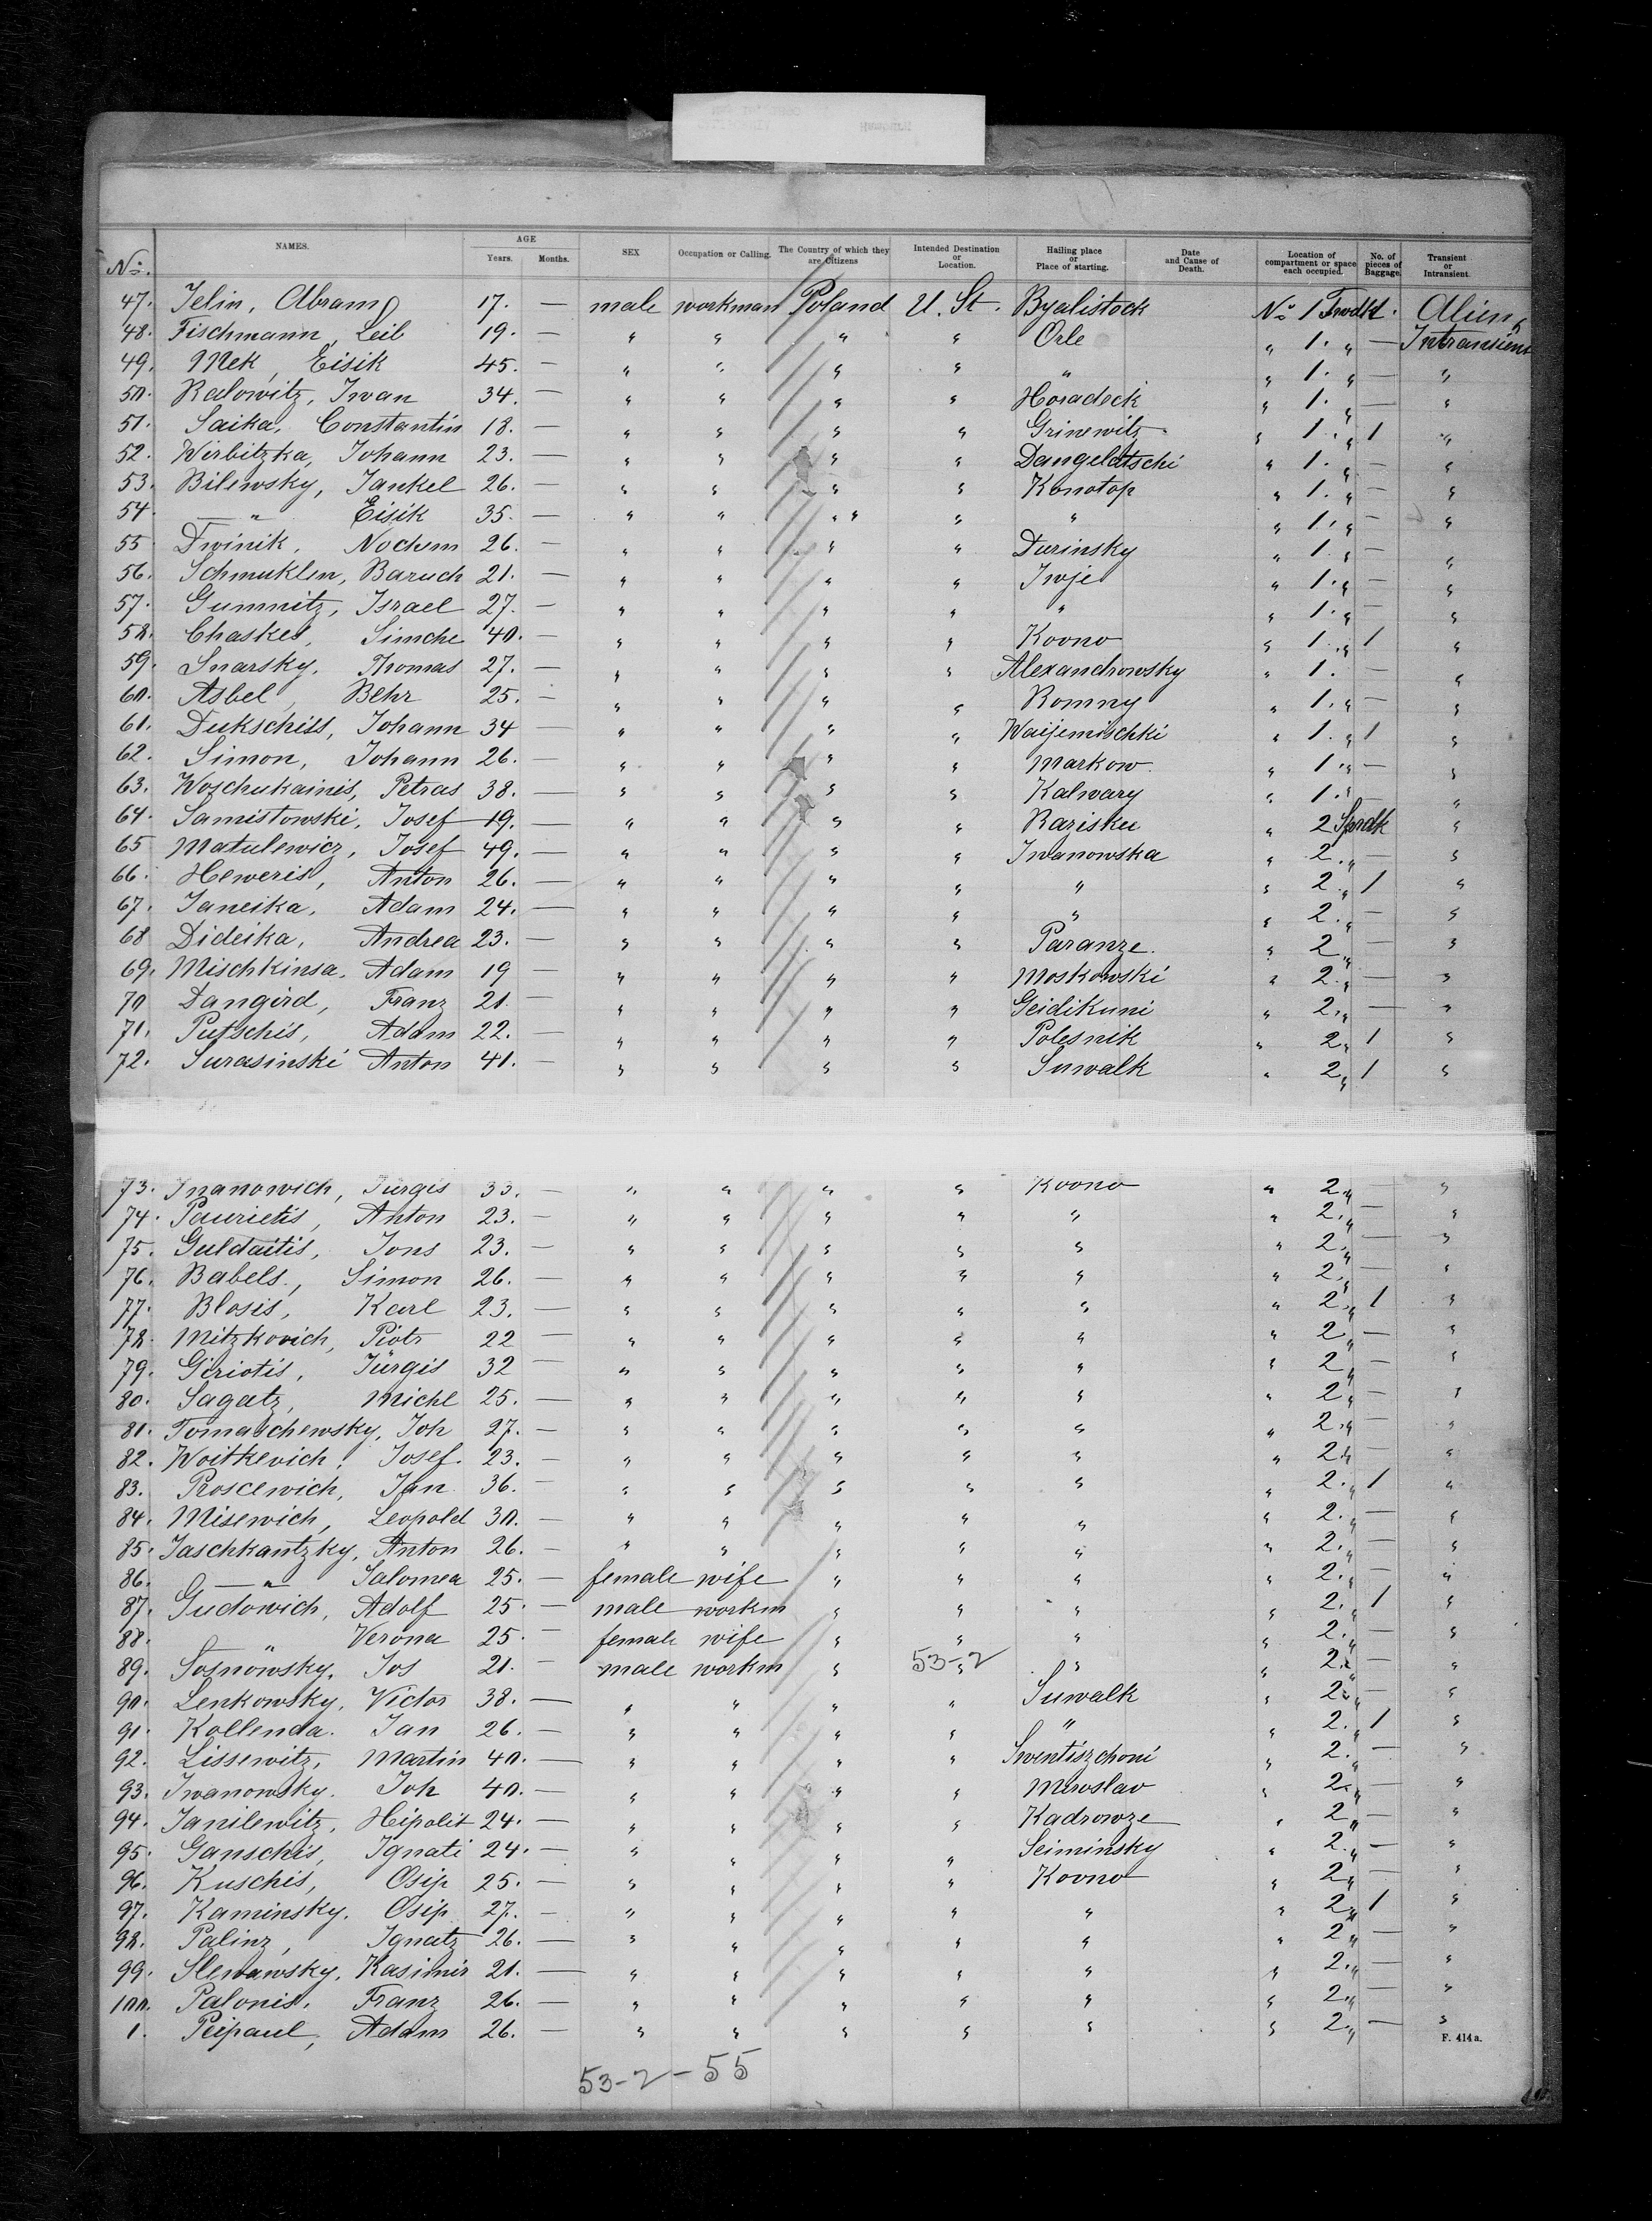 No. NAMES. AGE Years. Months. SEX Occupation or Calling. The Country of which they are Citizens Intended Destination or Location. Hailing place or Place of starting. Date and Cause of Death. Location of compartment or space each occupied. No. of pieces of Baggage. Transient or Intransient.
47. Jelin, Abram 17. — male workman Poland U. St. Byalistock No 1 Frwdk. Alien
48. Fischmann, Leib 19. — " " " " Orle " 1. " — Intransient
49. Mek, Eisik 45. — " " " " " " 1. " — "
50. Radowitz, Iwan 34. — " " " " Horadeck " 1. " — "
51. Saika, Constantin 18. — " " " " Grinewitz " 1. " 1 "
52. Wirbitzka, Johann 23. — " " " " Dangeldtschi " 1. " — "
53. Bilewsky, Jankel 26. — " " " " Konotop " 1. " — "
54 — " Eisik 35. — " " " " " " 1. " — "
55 Dwinik, Nochem 26. — " " " " Durinsky " 1. " — "
56. Schmuklen, Baruch 21. — " " " " Iwje " 1. " — "
57. Gumnitz, Israel 27. — " " " " " " 1. " — "
58. Chaskel, Simche 40. — " " " " Kovno " 1. " 1 "
59. Snarsky, Thomas 27. — " " " " Alexandrowsky " 1. — "
60. Asbel, Behr 25. — " " " " Romny " 1. " — "
61. Dukschiss, Johann 34 — " " " " Waijemischki " 1. " 1 "
62. Simon, Johann 26. — " " " " Markow. " 1. " — "
63. Woschukainis, Petras 38. — " " " " Kalwary " 1. " — "
64. Samistowski, Josef 19. — " " " " Raziskee " 2 Sprdk "
65 Matulewicz, Josef 49. — " " " " Iwanowska " 2. " — "
66. Heweris, Anton 26. — " " " " " " 2. " 1 "
67. Janeika, Adam 24. — " " " " " " 2. " — "
68 Dideika, Andrea 23. — " " " " Paranze. " 2 " — "
69. Mischkinsa, Adam 19 — " " " " Moskowski " 2. " — "
70 Dangird, Franz 21. — " " " " Geidikuni " 2. " — "
71. Putschis, Adam 22. — " " " " Polesnik " 2 " 1 "
72. Surasinski Anton 41. — " " " " Suwalk " 2 " 1 "
73. Inanowich, Jurgis 33. — " " " " Kovno " 2 " — "
74. Paurietis, Anton 23. — " " " " " " 2. " — "
75. Guldaitis, Jons 23. — " " " " " " 2. " — "
76. Babels., Simon 26. — " " " " " " 2. " — "
77. Blosis, Karl 23. — " " " " " " 2. " 1 "
78. Mitzkovich, Piotr 22 — " " " " " " 2 " — "
79. Giriotis, Jürgis 32 — " " " " " " 2 " — "
80. Sagatz, Michl 25. — " " " " " " 2 " — "
81. Tomaschewsky, Joh 27. — " " " " " " 2. " — "
82. Woitkevich, Josef. 23. — " " " " " " 2 " — "
83. Proscewich, Jan 36. — " " " " " " 2. " 1 "
84. Misewich, Leopold 30. — " " " " " " 2. " — "
85. Jaschkantzky, Anton 26. — " " " " " " 2. " — "
86. — " Salomea 25. — female wife " " " " 2. " — "
87. Gudowich, Adolf 25. — male workm " " " " 2. " 1 "
88. " Verona 25. — female wife " " " " 2. " — "
89. Sosnowsky, Jos 21. — male workm " 53-2 " " " 2. " — "
90. Lenkowsky, Victor 38. — " " " " Suwalk " 2 " — "
91. Kollenda. Jan 26. — " " " " " " 2. " 1 "
92. Lissewitz, Martin 40. — " " " " Swentiszchoni " 2. " — "
93. Iwanowsky. Joh 40. — " " " " Miroslav " 2. " — "
94. Janilewitz, Heipolit 24. — " " " " Kadrowze " 2 " — "
95. Ganschis, Ignati 24. — " " " " Seiminsky " 2. " — "
96. Kuschis, Osip 25. — " " " " Kovno " 2 " — "
97. Kaminsky. Osip 27. — " " " " " " 2 " 1 "
98. Palinz, Ignatz 26. — " " " " " " 2 " — "
99. Slewawsky, Kasimir 21. — " " " " " " 2. " — "
100. Palonis. Franz 26. — " " " " " " 2. " — "
1. Peipaul, Adam 26. — " " " " " " 2. " — "
F. 414 a.
53-2-55